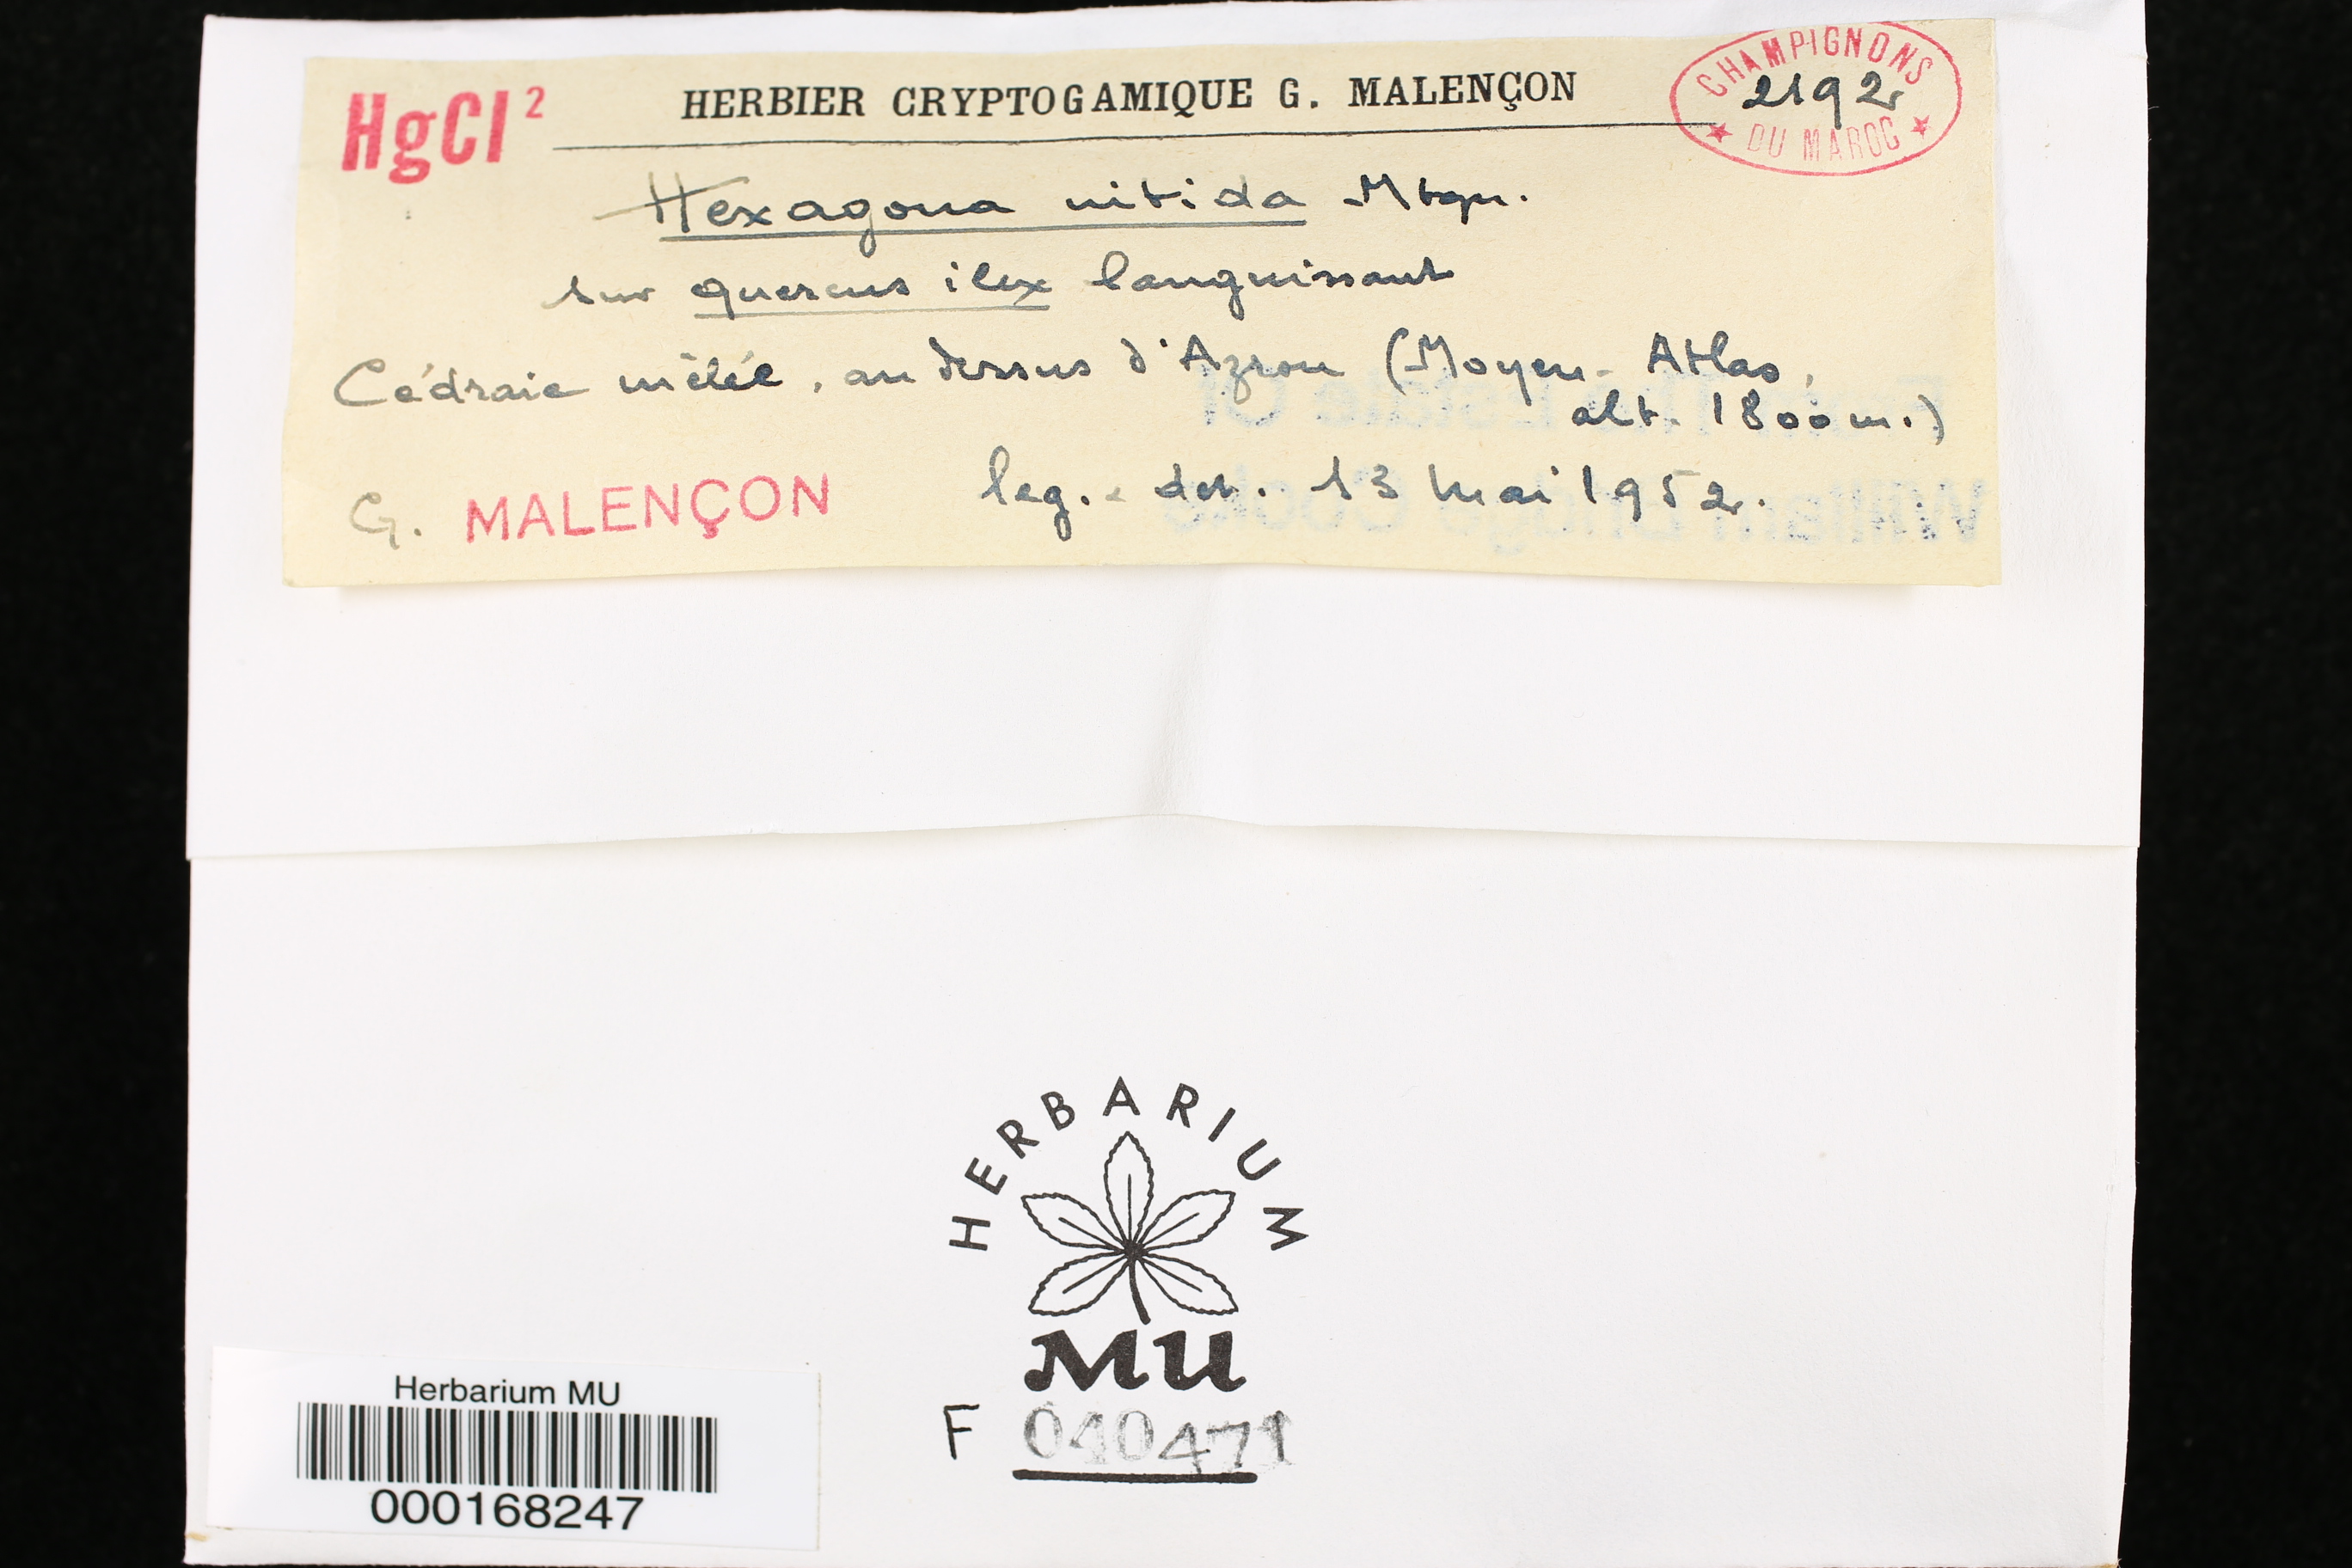 HgCl²
HERBIER CRYPTOGAMIQUE G. MALENÇON
CHAMPIGNONS
2192
DU MAROC
Hexagona nitida Mtgn.
sur quercus ilex languissant
Cédraie mêlée, au dessus d'Azrou (Moyen-Atlas,
alt. 1800 m.)
G. MALENÇON leg. det. 13 mai 1952.
HERBARIUM
MU
F 040471
Herbarium MU
000168247